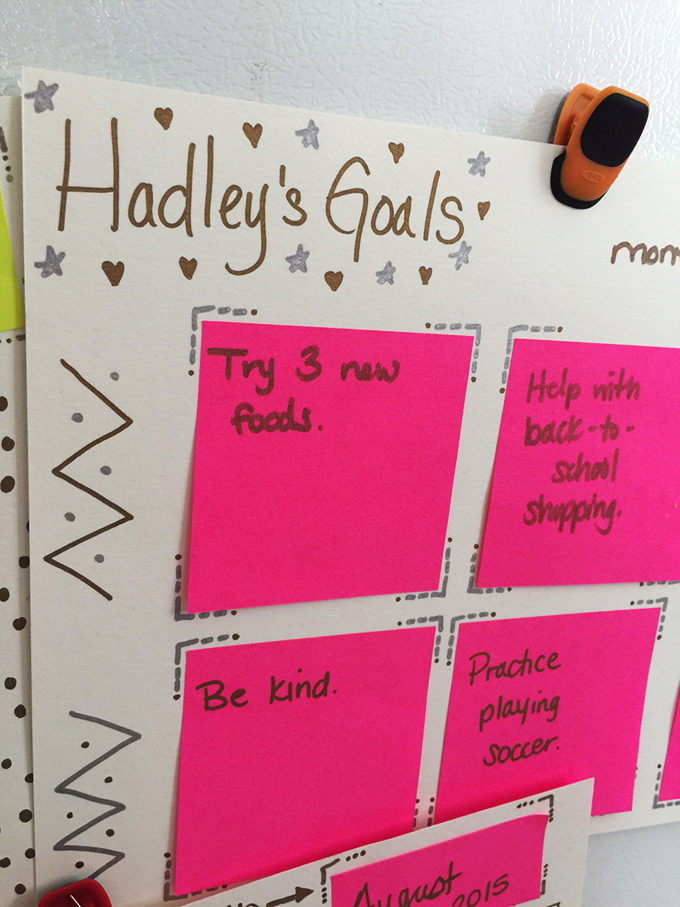 Hadley's Goals
Try 3 new
foods.
Help with
back-to-
school
shopping.
Be kind.
Practice
playing
soccer.
August
2015